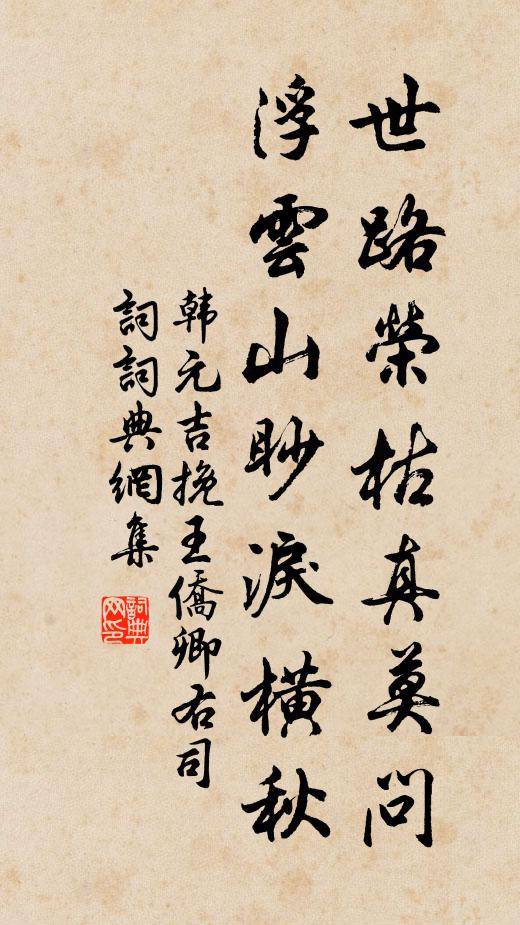 世路榮枯真莫問
浮雲山眇淚橫秋
韩元吉挽王僑卿右司
詞詞典網集
詞典网印